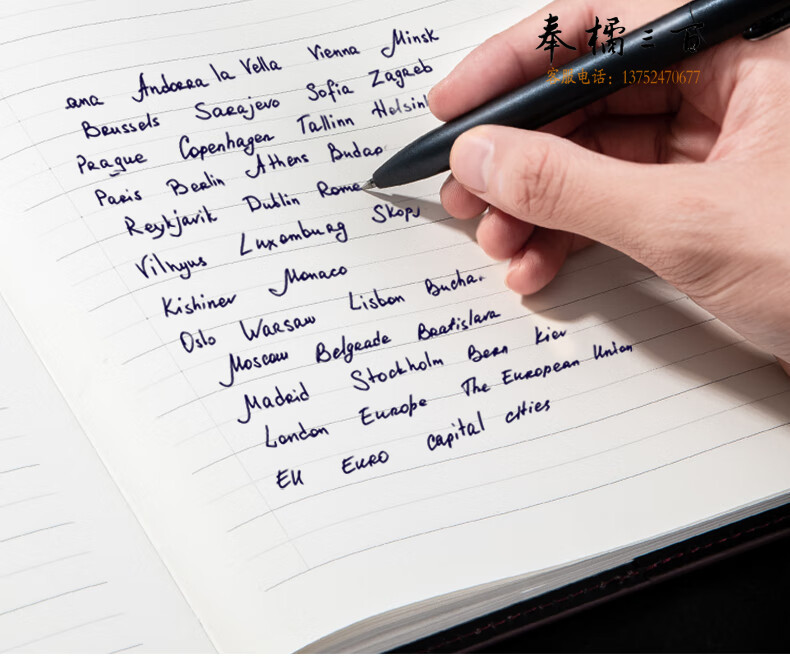 奉橘三
客服电话：13752470677
ana Andorra la Vella Vienna Minsk
Brussels Sarajevo Sofia Zagreb
Prague Copenhagen Tallinn Helsink
Paris Berlin Athens Budap
Reykjavik Dublin Rome
Vilnyus Luxemburg Skopj
Kishinev Monaco
Oslo Warsaw Lisbon Bucha
Moscow Belgrade Bratislava
Madrid Stockholm Bern Kiev
London Europe The European Union
EU EURO capital cities